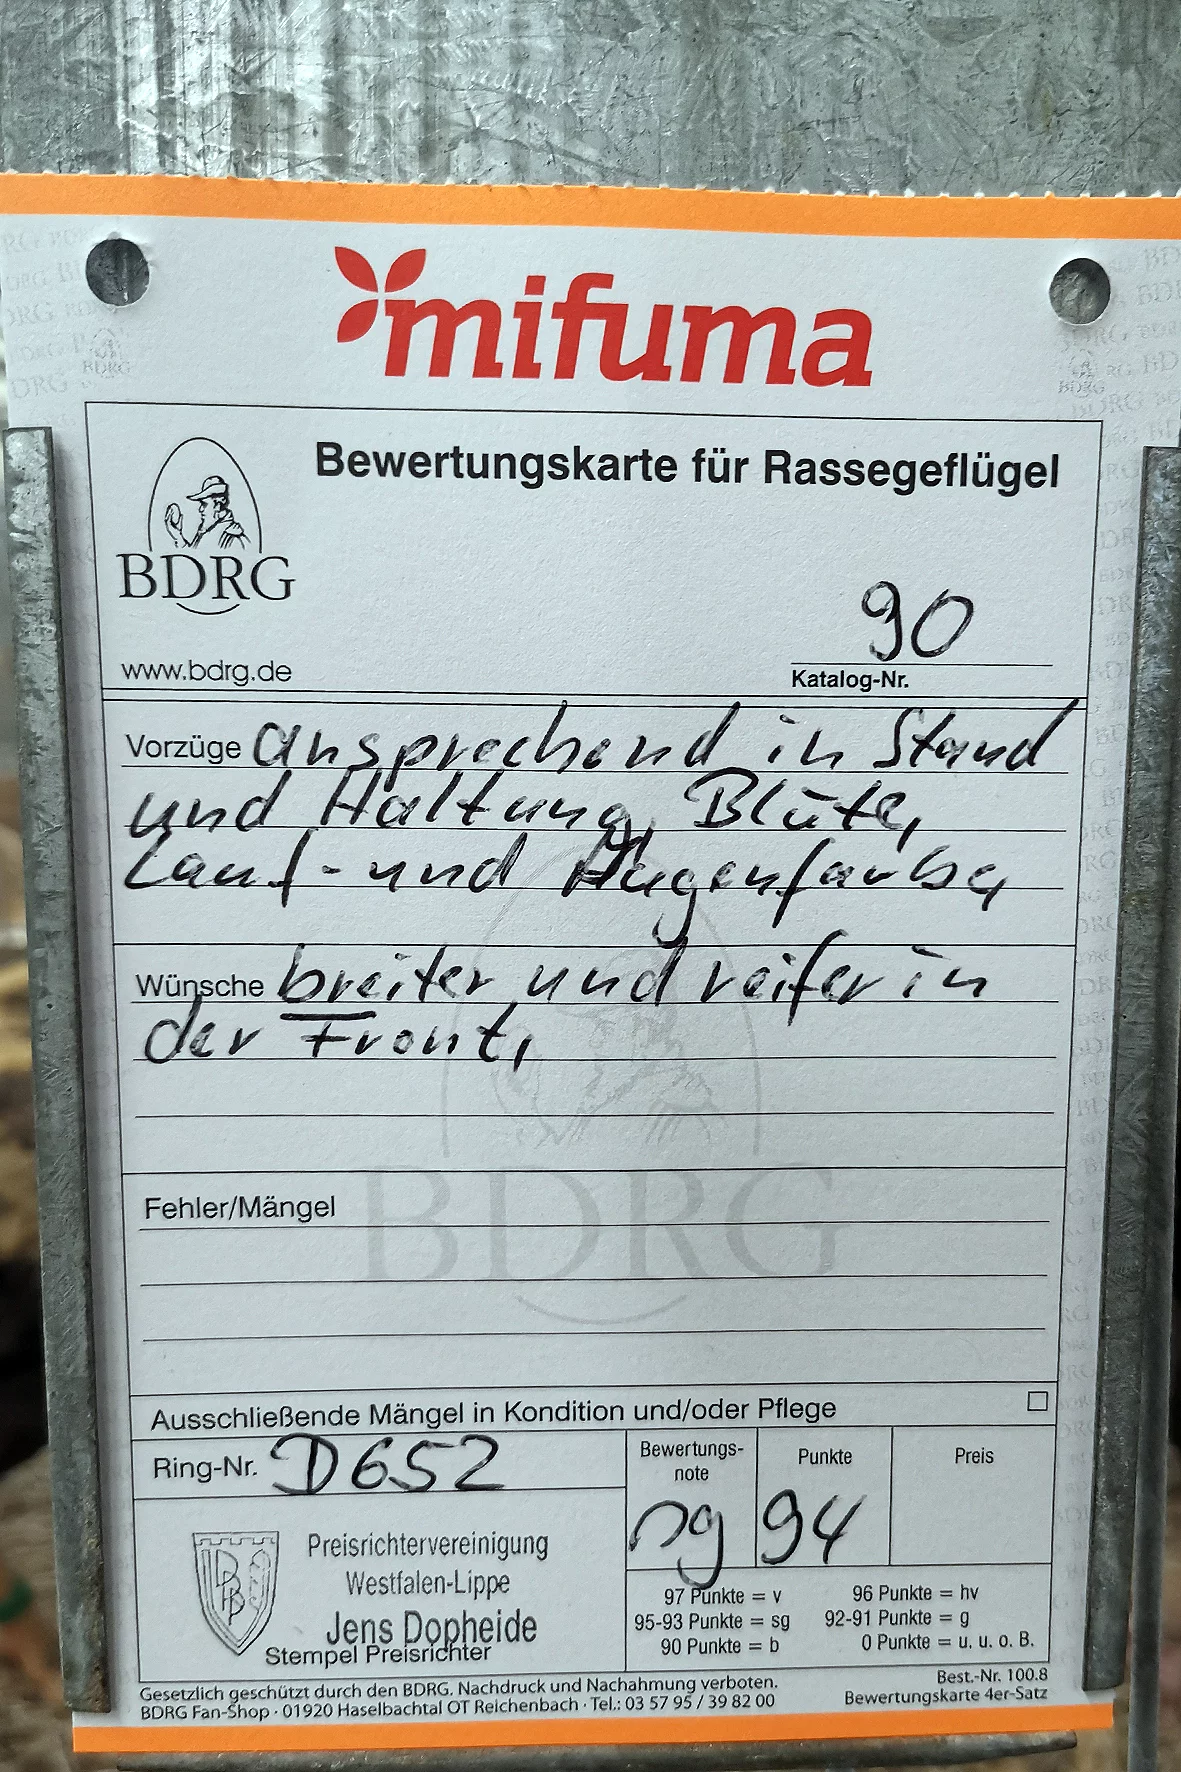 mifuma
Bewertungskarte für Rassegeflügel
BDRG
www.bdrg.de
90
Katalog-Nr.
Vorzüge ansprechend in Stand
und Haltung, Blüte,
Lauf- und Augenfarbe,
Wünsche breiter und reifer in
der Front,
BDRG
Fehler/Mängel
Ausschließende Mängel in Kondition und/oder Pflege
Ring-Nr. D652
Bewertungs-
note
sg
Punkte
94
Preis
Preisrichtervereinigung
Westfalen-Lippe
Jens Dopheide
Stempel Preisrichter
97 Punkte = v 96 Punkte = hv
95-93 Punkte = sg 92-91 Punkte = g
90 Punkte = b 0 Punkte = u. u. o. B.
Gesetzlich geschützt durch den BDRG. Nachdruck und Nachahmung verboten.
BDRG Fan-Shop · 01920 Haselbachtal OT Reichenbach · Tel.: 03 57 95 / 39 82 00
Best.-Nr. 100.8
Bewertungskarte 4er-Satz